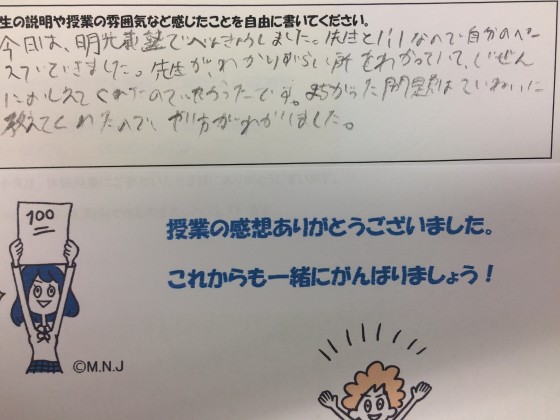 生の説明や授業の雰囲気など感じたことを自由に書いてください。
今日は、明光義塾でべんきょうしました。先生と1:1なので自分のペー
スでできました。先生がわかりづらい所をわかっていて、じぜん
におしえてくれたのでよかったです。まちがった問題はていねいに
教えてくれたので、やり方がわかりました。
100
授業の感想ありがとうございました。
これからも一緒にがんばりましょう！
©M.N.J